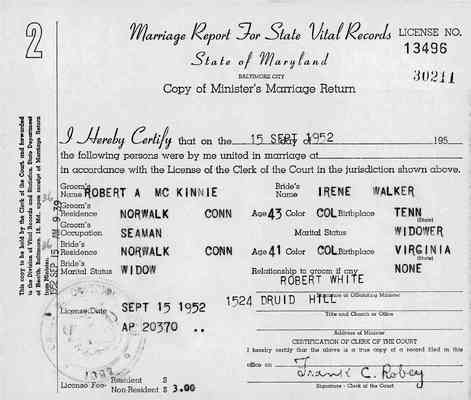 2
Marriage Report For State Vital Records
LICENSE NO.
13496
State of Maryland
30211
BALTIMORE CITY
Copy of Minister's Marriage Return
I Hereby Certify that on the 15 SEPT 1952 day of 195
the following persons were by me united in marriage at
in accordance with the License of the Clerk of the Court in the jurisdiction shown above.
Groom's Name ROBERT A MC KINNIE Bride's Name IRENE WALKER
Groom's Residence NORWALK CONN Age 43 Color COL Birthplace TENN
(State)
Groom's Occupation SEAMAN Marital Status WIDOWER
Bride's Residence NORWALK CONN Age 41 Color COL Birthplace VIRGINIA
(State)
Bride's Marital Status WIDOW Relationship to groom if any NONE
ROBERT WHITE
of Officiating Minister
License Date SEPT 15 1952 1524 DRUID HILL
Title and Church or Office
AP 20370
Address of Minister
CERTIFICATION OF CLERK OF THE COURT
I hereby certify that the above is a true copy of a record filed in this
office on
Frank C. Robey
Signature - Clerk of the Court
License Fee- Resident $
Non-Resident $ 3.00
This copy to be kept by the Clerk of the Court and forwarded
to the Division of Vital Records and Statistics, State Department
of Health, Baltimore, 18, Md. upon receipt of Marriage Return
from Minister.